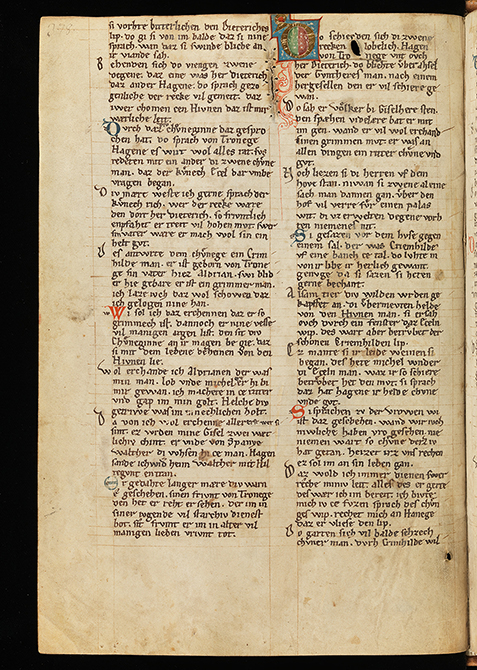 si vorhte bitterlichen den Dieteriches
lip. do gie si von im balde daz si niene
sprach. wan daz si swinde bliche an
ir viande sah.
B ehenden sich do viengen zwene
degene. daz eine was her Dieterich
daz ander Hagene. do sprach gezo
genliche der recke vil gemeit. daz
iwer chomen zen Hivnen daz ist mir
wærliche leit.
D urch daz div chuneginne daz gespro
chen hat. do sprach von Tronege
Hagene es wirt wol alles rat. sus
redeten mit ein ander di zwene chune
man. daz der kunech Ecel dar umbe
vragen began.
D iv mære weste ich gerne sprach der
kunech rich. wer der recke wære
den dort her Dieterich. so frivntlich
enpfahet er treit vil hohen mvt. swer
sin vater wære er mach wol sin ein
helt gvt.
D es antwrte dem chunege ein Crim
hilde man. er ist geborn von Trone
ge sin vater hiez Aldrian. swi blid
er hie gebare er ist ein grimmer man.
ich laze ivch daz wol schowen daz
ich gelogen nine han.
W i sol ich daz erchennen daz er so
grimmech ist. dannoch er nine wesse
vil manigen argen list. den sit div
chuneginne an ir magen begie. daz
si nit dem lebene deheinen von den
Hivnen lie.
W ol erchande ich Aldrianen der was
min man. lob unde michel er hi bi
mir gewan. ich machete in ce ritter
und gap im min golt. Helche div
getriwe was im innechlichen holt.
D a von ich wol erchenne allez
sint. ez wrden mine gisel zwei wæt
lichiv chint. er unde von Spanye
walther di wohsen hi ce man. Hagen
sande ich wider heim walther mit Hil
tegunt entran.
E r gedahte langer mære div warn
e geschehen. sinen frivnt von Tronege
den het er reht ersehen. der im in
siner jugende vil starchiv dienest
bot. sit frumt er im in alter vil
manigen lieben vrivnt tot.
D o schieden sich di zwene
recken lobelich. Hagen
von Tronege unt ovch
her Dieterich. do blihte uber ahsel
der Guntheres man. nach einem
hergesellen den er vil schiere ge
wan.
D o sah er Volker bi Giselhere sten.
den spæhen videlære bat er mit
im gen. wand er vil wol erchand
sinen grimmen mvt. er was an
allen dingen ein ritter chune und
gvt.
N och liezen si di herren uf dem
hove stan. niwan si zwene aleine
sach man dannen gan. uber den
hof vil verre fur einen palas
wit. di uz erwelten degene vorh
ten niemens nit.
S i gesazen vor dem huse gegen
einem sal. der was Criemhilde
uf eine banch ce tal. do lohte in
von ir libe ir herlich gewant.
genvge da si sazen si heten
gerne bechant.
A lsam tier div wilden wrden ge
kapfet an. di ubermveten helde
von den Hivnen man. si ersah
ovch durch ein fenster daz Eceln
wip. des wart aber betrubet der
schonen Criemhilden lip.
E z mante si ir leide weinen si
began. des hete michel wnder
di Eceln man. waz ir so schiere
betrubet her den mvt. si sprach
daz hat Hagene ir helde chune
unde gvt.
S i sprachen zv der vrowen wi
ist daz geschehen. wand wir ivch
niwliche haben vro gesehen. nie
niemen wart so chune derz iv
hat getan. heizet irz uns rechen
ez sol im an sin leben gan.
D az wold ich immer dienen swer
reche miniv leit. alles des er gerte
des wær ich im bereit. ich bivte
mich iv ce fuzen sprach des chun
ges wip. rechet mich an Hagene
daz er vliese den lip.
D o garten sich vil balde sehzech
chuner man. durh Criemhilde wil